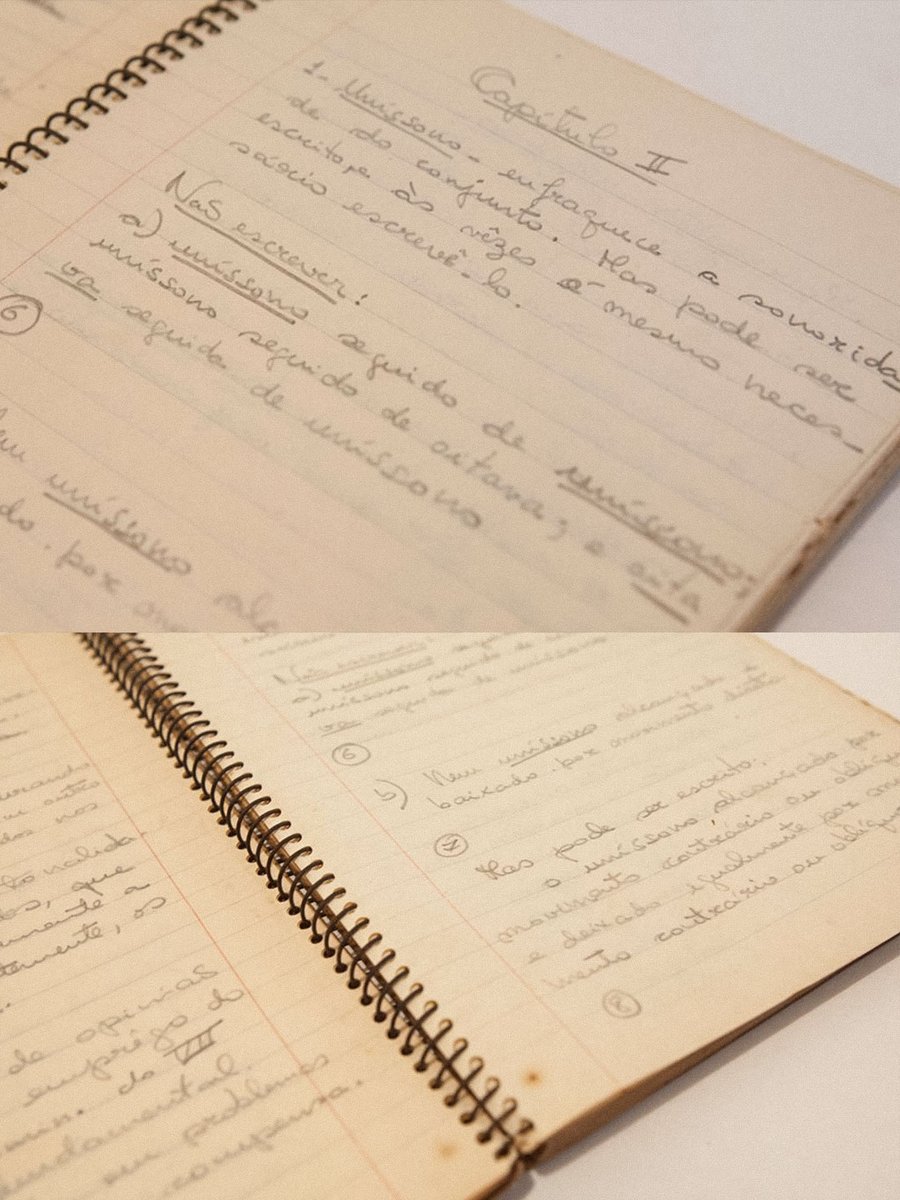 Capítulo II
1- Uníssono - enfraquece a sonorida
de do conjunto. Mas pode ser
escrito, e às vêzes é mesmo neces-
sário escrevê-lo.
Não escrever!
a) uníssono seguido de uníssono;
uníssono seguido de oitava; e oita
va seguida de uníssono
6
uníssono
do. por
a) uníssono seguido de
uníssono seguido de
va seguida de uníssono
6
b) Nem uníssono alcançado e
baixado. por movimento direto
7
Mas pode ser escrito.
o uníssono, alcançado por
movimento contrário ou oblíquo
e deixado igualmente por mo
mento contrário ou oblíquo
8
ou outro
dos nos
que
amente a
tamente, os
de opinião
emprêgo do
do VII
fundamental.
em problemas
compensa.